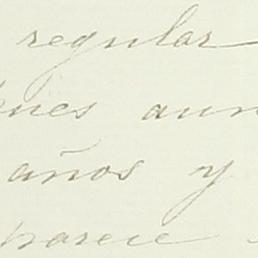 regular
pues aun
años y
parece